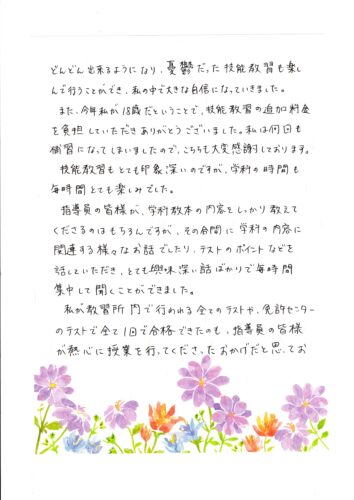 どんどん出来るようになり、憂鬱だった技能教習も楽し
んで行うことができ、私の中で大きな自信になっていきました。
また、今年私が18歳だということで、技能教習の追加料金
を負担していただきありがとうございました。私は何回も
補習になってしまいましたので、こちらも大変感謝しております。
技能教習もとても印象深いのですが、学科の時間も
毎時間とても楽しみでした。
指導員の皆様が、学科教本の内容をしっかり教えて
くださるのはもちろんですが、その合間に学科の内容に
関連する様々なお話でしたり、テストのポイントなどを
話していただき、とても興味深い話ばかりで毎時間
集中して聞くことができました。
私が教習所内で行われる全てのテストや、免許センター
のテストで全て1回で合格できたのも、指導員の皆様
が熱心に授業を行ってくださったおかげだと思ってお